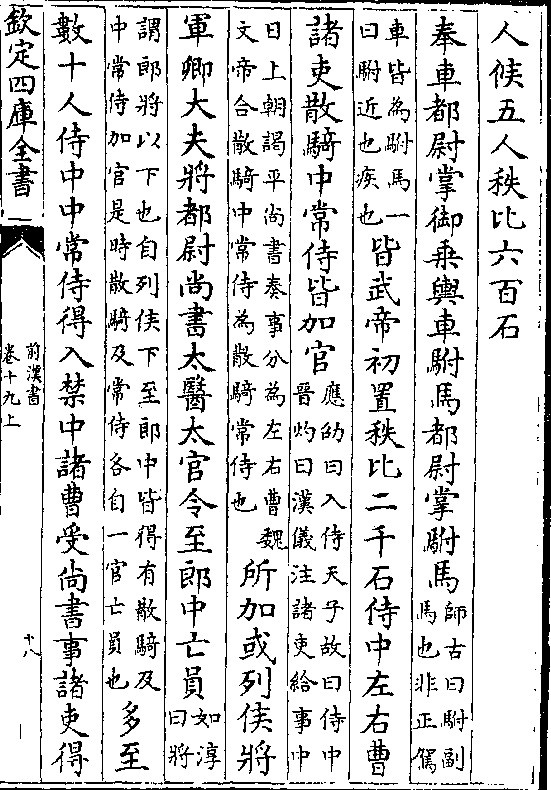 人候五人秩比六百石
奉車都尉掌御乗輿車駙馬都尉掌駙馬
師古曰駙副
馬也非正駕
車皆為駙馬一
曰駙近也疾也
皆武帝初置秩比二千石侍中左右曹
諸吏散騎中常侍皆加官
應劭曰入侍天子故曰侍中
晉灼曰漢儀注諸吏給事中
日上朝謁平尚書奏事分為左右曹魏
文帝合散騎中常侍為散騎常侍也
所加或列侯將
軍卿大夫將都尉尚書太醫太官令至郎中亡員
如淳
曰將
謂郎將以下也自列侯下至郎中皆得有散騎及
中常侍加官是時散騎及常侍各自一官亡員也
多至
數十人侍中中常侍得入禁中諸曹受尚書事諸吏得
欽定四庫全書
前漢書
卷十九上
十八